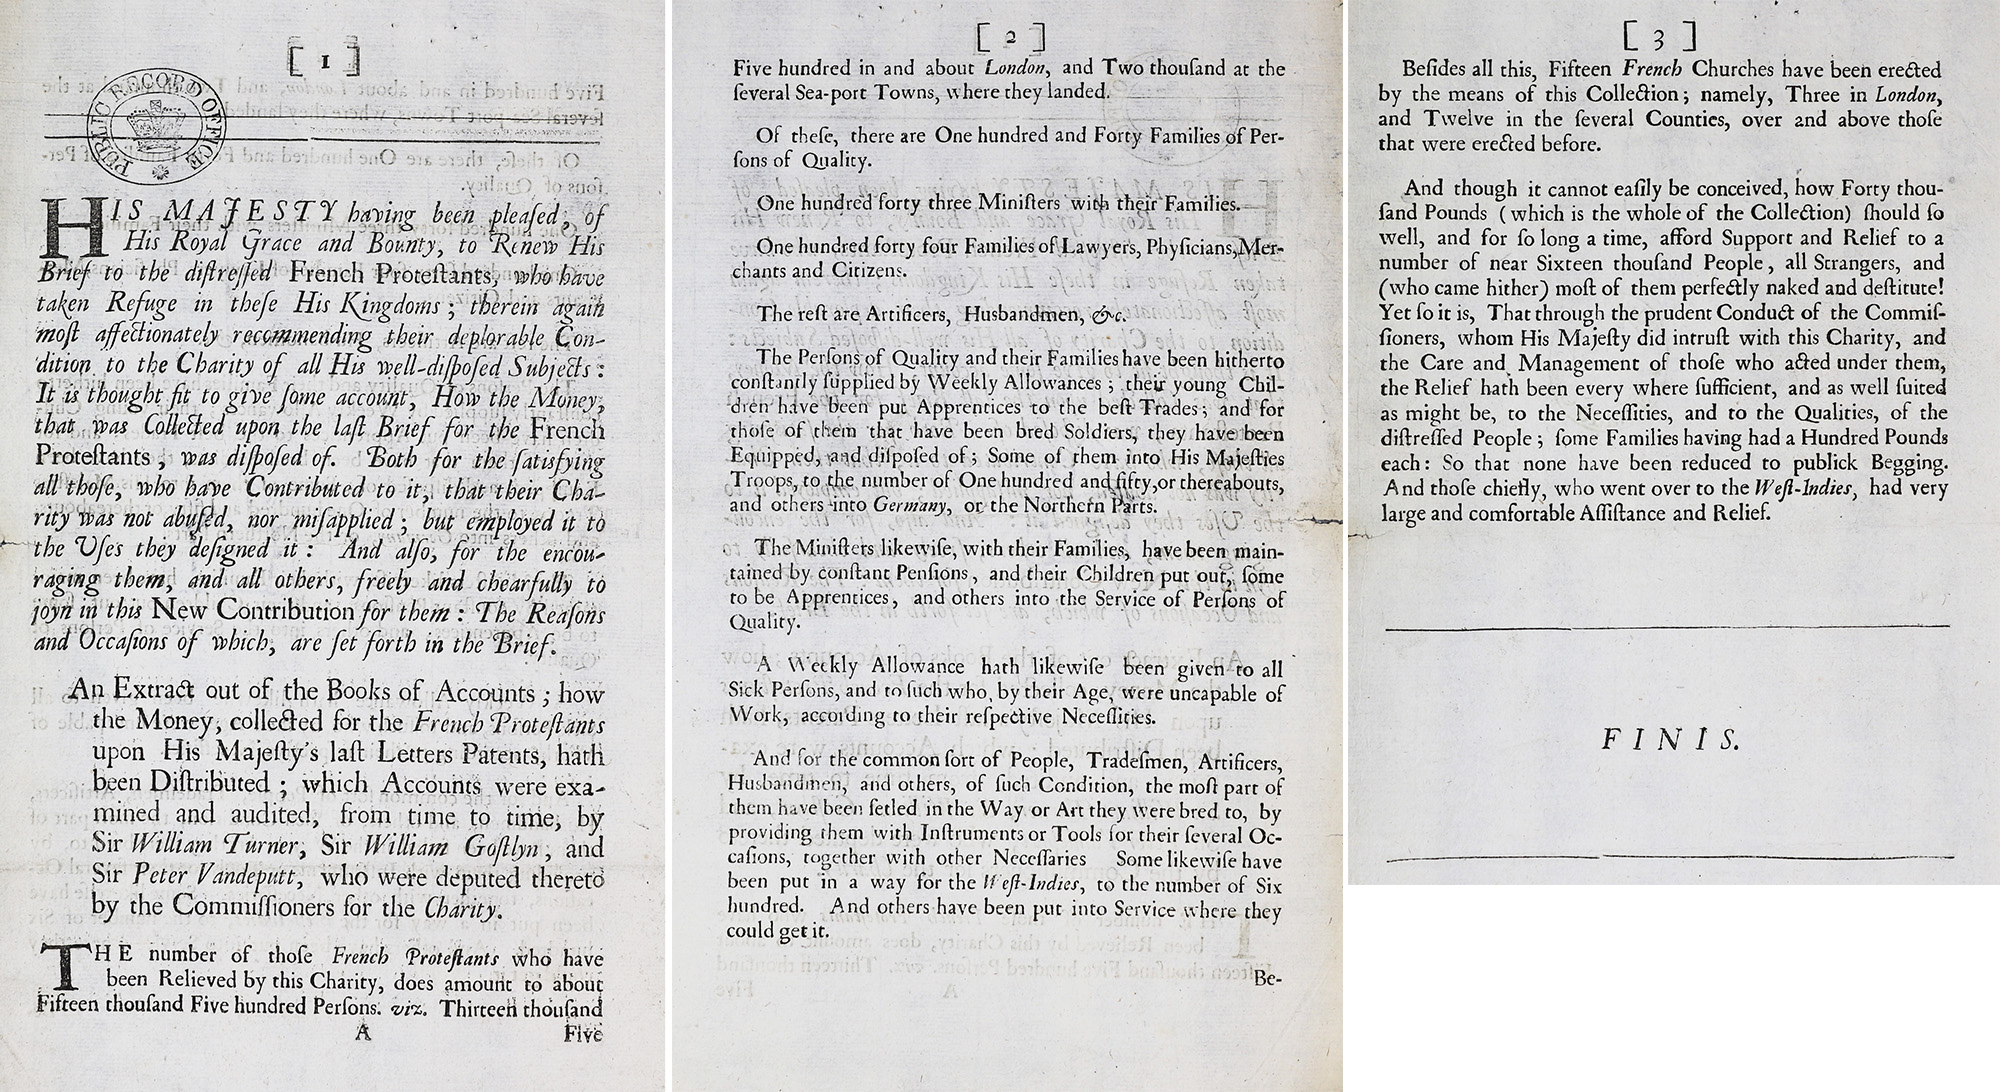 [ 1 ]
PUBLIC RECORD OFFICE
HIS MAJESTY having been pleaſed, of
His Royal Grace and Bounty, to Renew His
Brief to the diſtreſſed French Proteſtants, who have
taken Refuge in theſe His Kingdoms; therein again
moſt affectionately recommending their deplorable Con-
dition to the Charity of all His well-diſpoſed Subjects:
It is thought fit to give ſome account, How the Money,
that was Collected upon the laſt Brief for the French
Proteſtants, was diſpoſed of. Both for the ſatisfying
all thoſe, who have Contributed to it, that their Cha-
rity was not abuſed, nor miſapplied; but employed it to
the Uſes they deſigned it: And alſo, for the encou-
raging them, and all others, freely and chearfully to
joyn in this New Contribution for them: The Reaſons
and Occaſions of which, are ſet forth in the Brief.
An Extract out of the Books of Accounts; how
the Money, collected for the French Proteſtants
upon His Majeſty's laſt Letters Patents, hath
been Diſtributed; which Accounts were exa-
mined and audited, from time to time, by
Sir William Turner, Sir William Goſtlyn, and
Sir Peter Vandeputt, who were deputed thereto
by the Commiſſioners for the Charity.
THE number of thoſe French Proteſtants who have
been Relieved by this Charity, does amount to about
Fifteen thouſand Five hundred Perſons. viz. Thirteen thouſand
A Five
[ 2 ]
Five hundred in and about London, and Two thouſand at the
ſeveral Sea-port Towns, where they landed.
Of theſe, there are One hundred and Forty Families of Per-
ſons of Quality.
One hundred forty three Miniſters with their Families.
One hundred forty four Families of Lawyers, Phyſicians, Mer-
chants and Citizens.
The reſt are Artificers, Husbandmen, &c.
The Perſons of Quality and their Families have been hitherto
conſtantly ſupplied by Weekly Allowances; their young Chil-
dren have been put Apprentices to the beſt Trades; and for
thoſe of them that have been bred Soldiers, they have been
Equipped, and diſpoſed of; Some of them into His Majeſties
Troops, to the number of One hundred and fifty, or thereabouts,
and others into Germany, or the Northern Parts.
The Miniſters likewiſe, with their Families, have been main-
tained by conſtant Penſions, and their Children put out, ſome
to be Apprentices, and others into the Service of Perſons of
Quality.
A Weekly Allowance hath likewiſe been given to all
Sick Perſons, and to ſuch who, by their Age, were uncapable of
Work, according to their reſpective Neceſſities.
And for the common ſort of People, Tradeſmen, Artificers,
Husbandmen, and others, of ſuch Condition, the moſt part of
them have been ſetled in the Way or Art they were bred to, by
providing them with Inſtruments or Tools for their ſeveral Oc-
caſions, together with other Neceſſaries Some likewiſe have
been put in a way for the Weſt-Indies, to the number of Six
hundred. And others have been put into Service where they
could get it.
Be-
[ 3 ]
Beſides all this, Fifteen French Churches have been erected
by the means of this Collection; namely, Three in London,
and Twelve in the ſeveral Counties, over and above thoſe
that were erected before.
And though it cannot eaſily be conceived, how Forty thou-
ſand Pounds (which is the whole of the Collection) ſhould ſo
well, and for ſo long a time, afford Support and Relief to a
number of near Sixteen thouſand People, all Strangers, and
(who came hither) moſt of them perfectly naked and deſtitute!
Yet ſo it is, That through the prudent Conduct of the Commiſ-
ſioners, whom His Majeſty did intruſt with this Charity, and
the Care and Management of thoſe who acted under them,
the Relief hath been every where ſufficient, and as well ſuited
as might be, to the Neceſſities, and to the Qualities, of the
diſtreſſed People; ſome Families having had a Hundred Pounds
each: So that none have been reduced to publick Begging.
And thoſe chiefly, who went over to the Weſt-Indies, had very
large and comfortable Aſſiſtance and Relief.
FINIS.